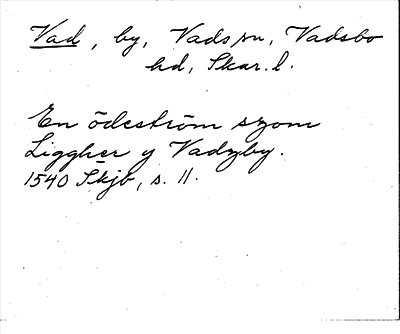 Vad, by, Vads sn, Vadsbo
hd, Skar. l.
En ödeström szom
Liggher y Vadzby.
1540 Skjb, s. 11.